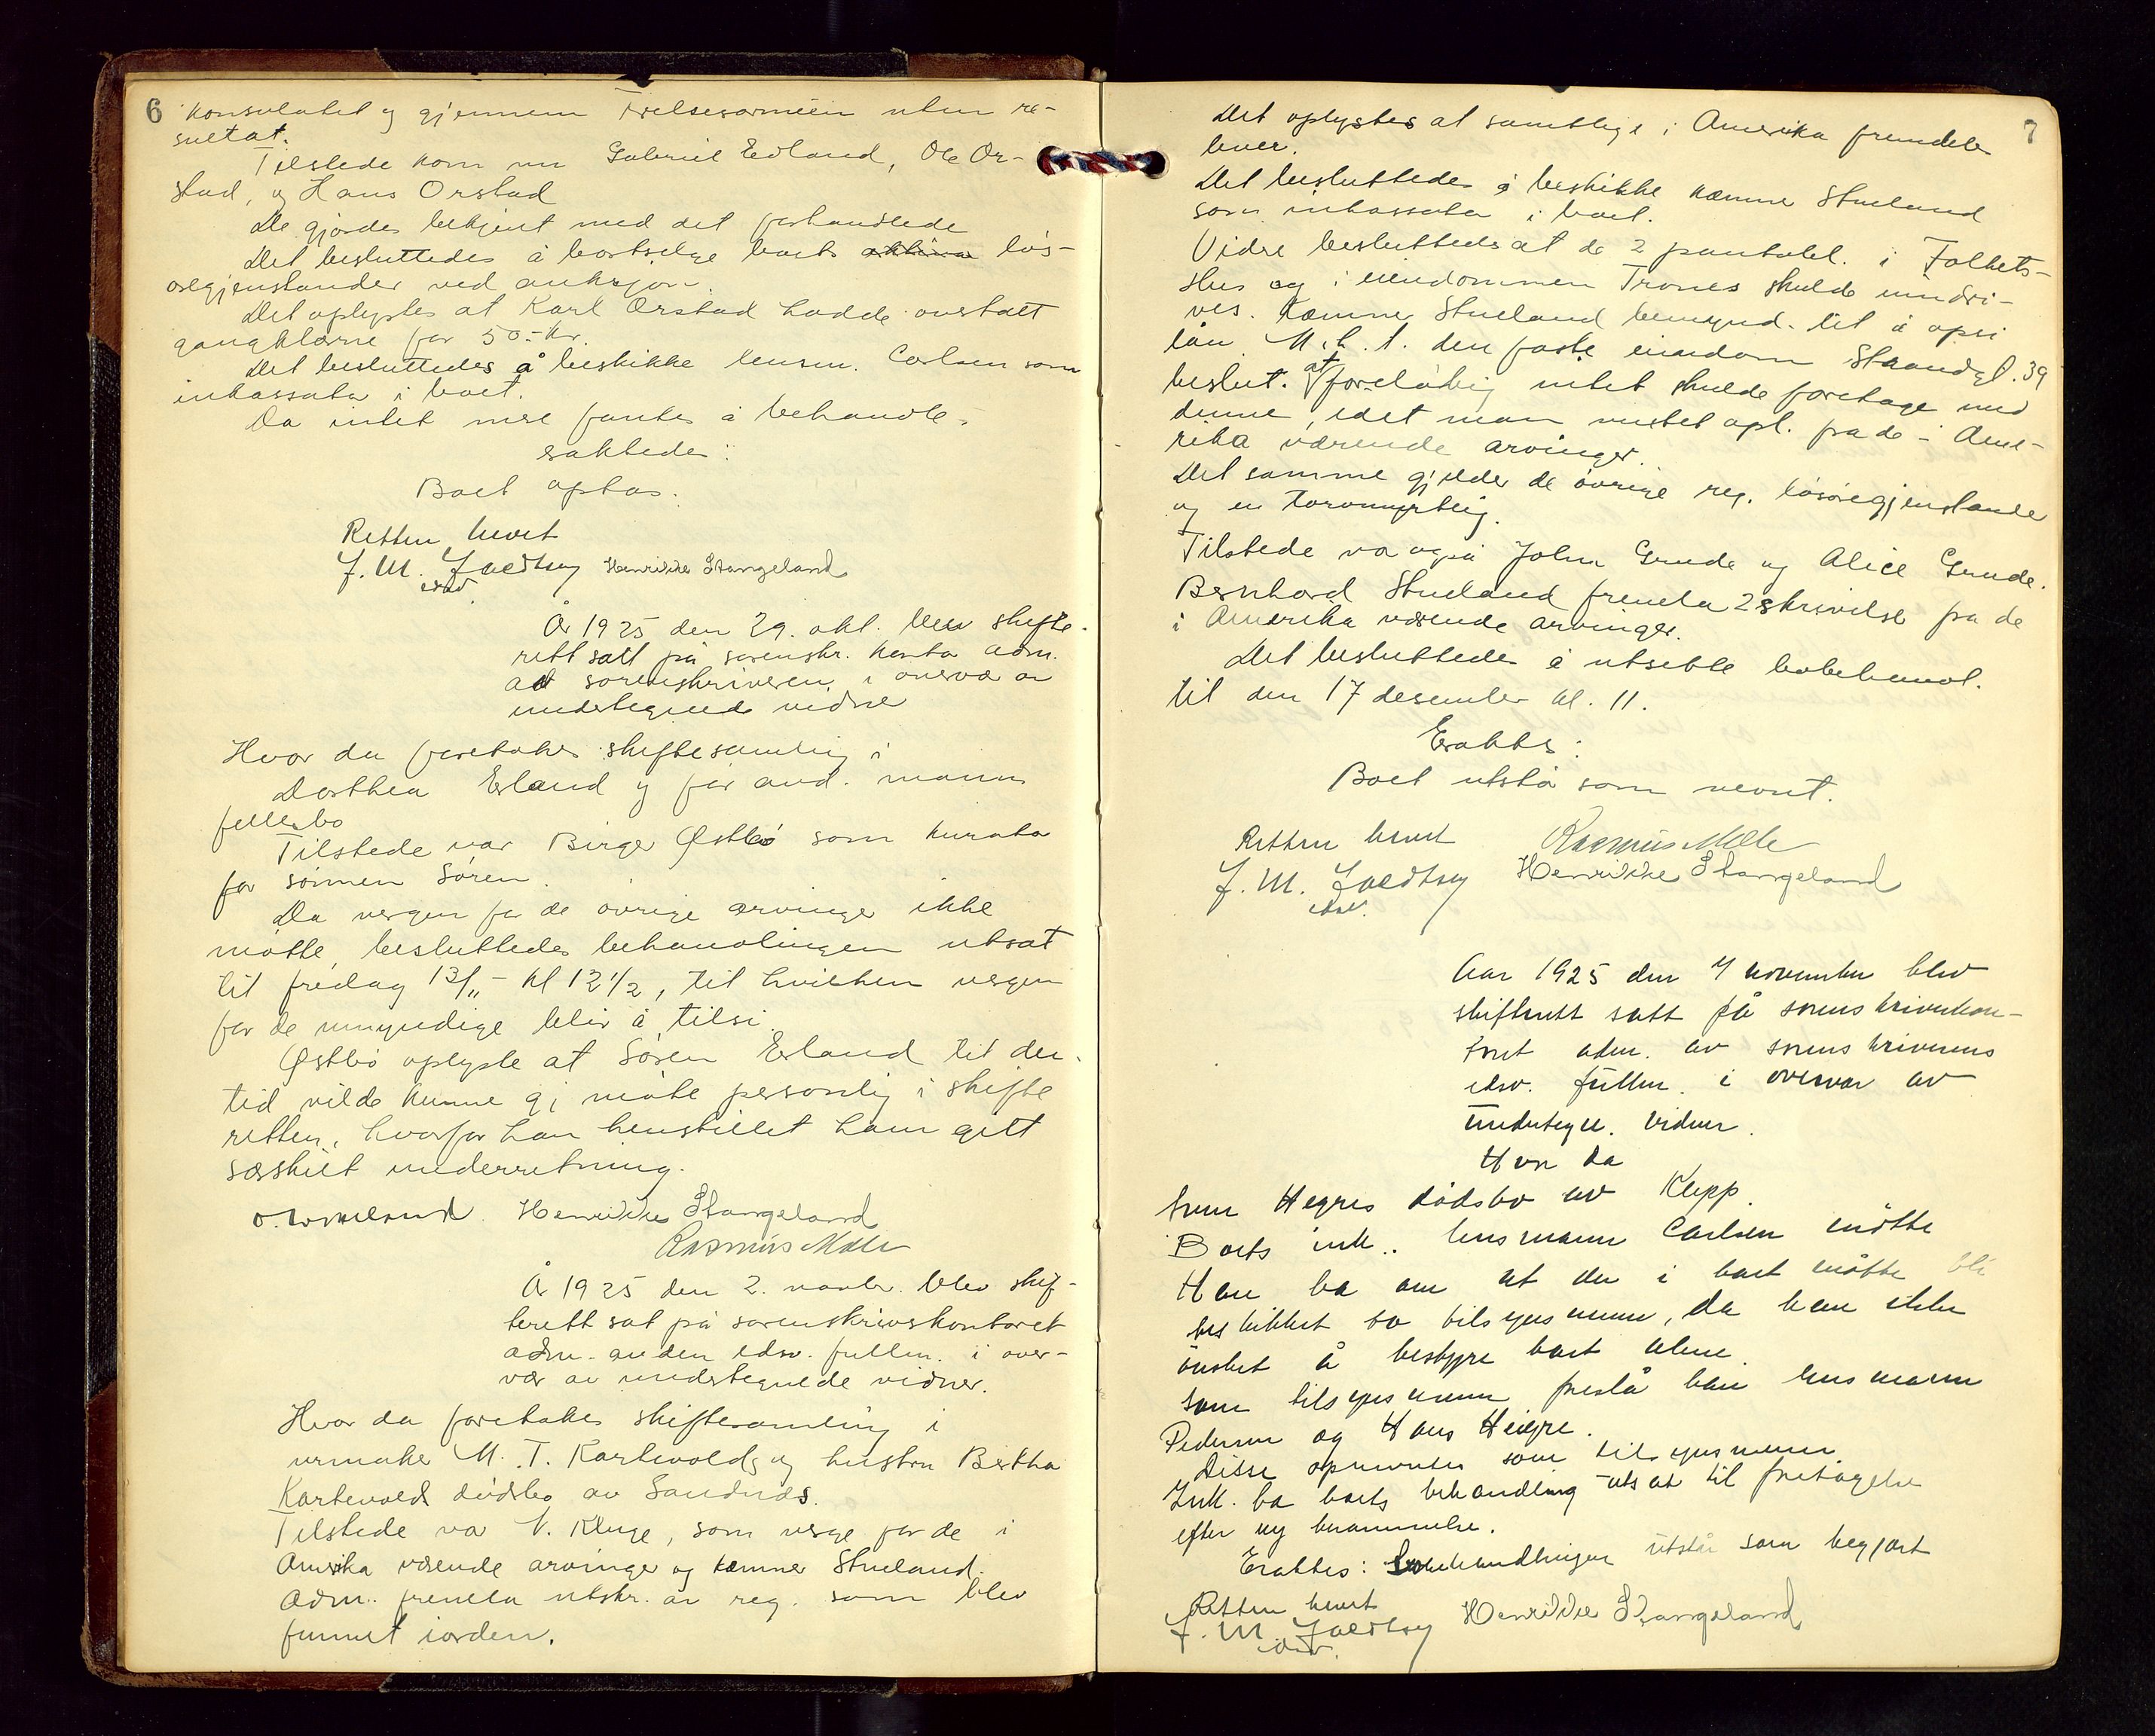 6
konsulatet og gjennem Frelsesarmeen uten re-
sultat.
Tilstede kom nu Gabriel Edland, Ole Or-
stad, og Hans Orstad
De gjordes bekjent med det forhandlede
Det besluttedes å bortselge boets løs-
øregjenstander ved auksjon.
Det oplystes at Karl Orstad hadde overtatt
gangklærne for 50.- kr.
Det besluttedes å beskikke lensm. Carlsen som
inkassator i boet.
Da intet mere fantes å behandle,
eraktedes:
Boet optas.
Retten hevet
J. M. Henrikke Stangeland
edsv.
År 1925 den 29. okt. blev skifte-
rett satt på sorenskr. kontor adm.
av sorenskriveren i overvær av
undertegnede vidner
Hvor da foretokes skiftesamling i
Dorthea Erland og før avd. manns
fellesbo
Tilstede var Birger Østbø som kurator
for sønnen Søren.
Da vergen for de øvrige arvinger ikke
møtte, besluttedes behandlingen utsat
til fredag 13/11 - kl 12 1/2, til hvilken vergen
for de umyndige blir å tilsi.
Østbø oplyste at Søren Erland til den
tid vilde kunne gi møte personlig i skifte
retten, hvorfor han henstillet ham gitt
særskilt underretning.
Henrikke Stangeland
Rasmus Mæle
År 1925 den 2. novbr. blev skif-
terett sat på sorenskriverkontoret
adm. av den edsv. fullm. i over-
vær av undertegnede vidner.
Hvor da foretokes skiftesamling i
urmaker M. T. Kartevolds og hustru Bertha
Kartevolds dødsbo av Sandnes.
Tilstede var V. Kluge, som verge for de i
Amerika værende arvinger og kemner Stueland.
Adm. fremla utskr. av reg. som blev
funnet i orden.
7
Det oplystes at samtlige i Amerika fremdeles
lever.
Det besluttedes å beskikke kæmner Stueland
som inkassator i boet.
Videre besluttedes at de 2 pantobl. i Folkets-
Hus og i eiendommen Trones skulde inndri-
ves. Kæmner Stueland bemynd. til å opsi
lån. M. h. t. den faste eiendom Strandgt. 39
beslut. at foreløbig intet skulde foretages med
denne, idet man ventet opl. fra de i Ame-
rika værende arvinger.
Det samme gjelder de øvrige reg. løsøregjenstander
og en torvmyrteig.
Tilstede var også John Grude og Alice Grude.
Bernhard Stueland fremla 2 skrivelser fra de
i Amerika værende arvinger.
Det besluttedes å utsette bobehandl.
til den 17 desember kl. 11.
Eraktes:
Boet utstår som nevnt.
Retten hevet Rasmus Mæle
J. M. Henrikke Stangeland
edsv.
Aar 1925 den 7 november blev
skifterett satt på sorenskriverkon-
toret adm. av sorenskriverens
edsv. fullm. i overvær av
undertegn. vidner.
Hvor da
Sven Hegres dødsbo av Klepp.
Boets ink. lensmann Carlsen møtte
Han ba om at der i boet måtte bli
beskikket to tilsynsmenn, da han ikke
ønsket å bestyre boet alene.
Som tilsynsmenn foreslo han lensmann
Pedersen og Hans Heigre.
Disse opnevntes som tilsynsmenn.
Ink. ba boets behandling utsat til foretagelse
efter ny berammelse.
Eraktes: Bobehandlingen utstår som begjært
Retten hevet
J. M. Henrikke Stangeland
edsv.